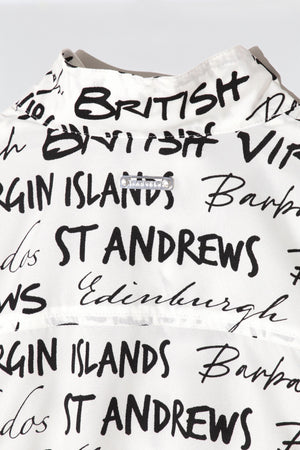 BRITISH
BRITISH VIR
RGIN ISLANDS Barba
dos ST ANDREWS
WS Edinburgh
RGIN ISLANDS Barba
dos ST ANDREWS